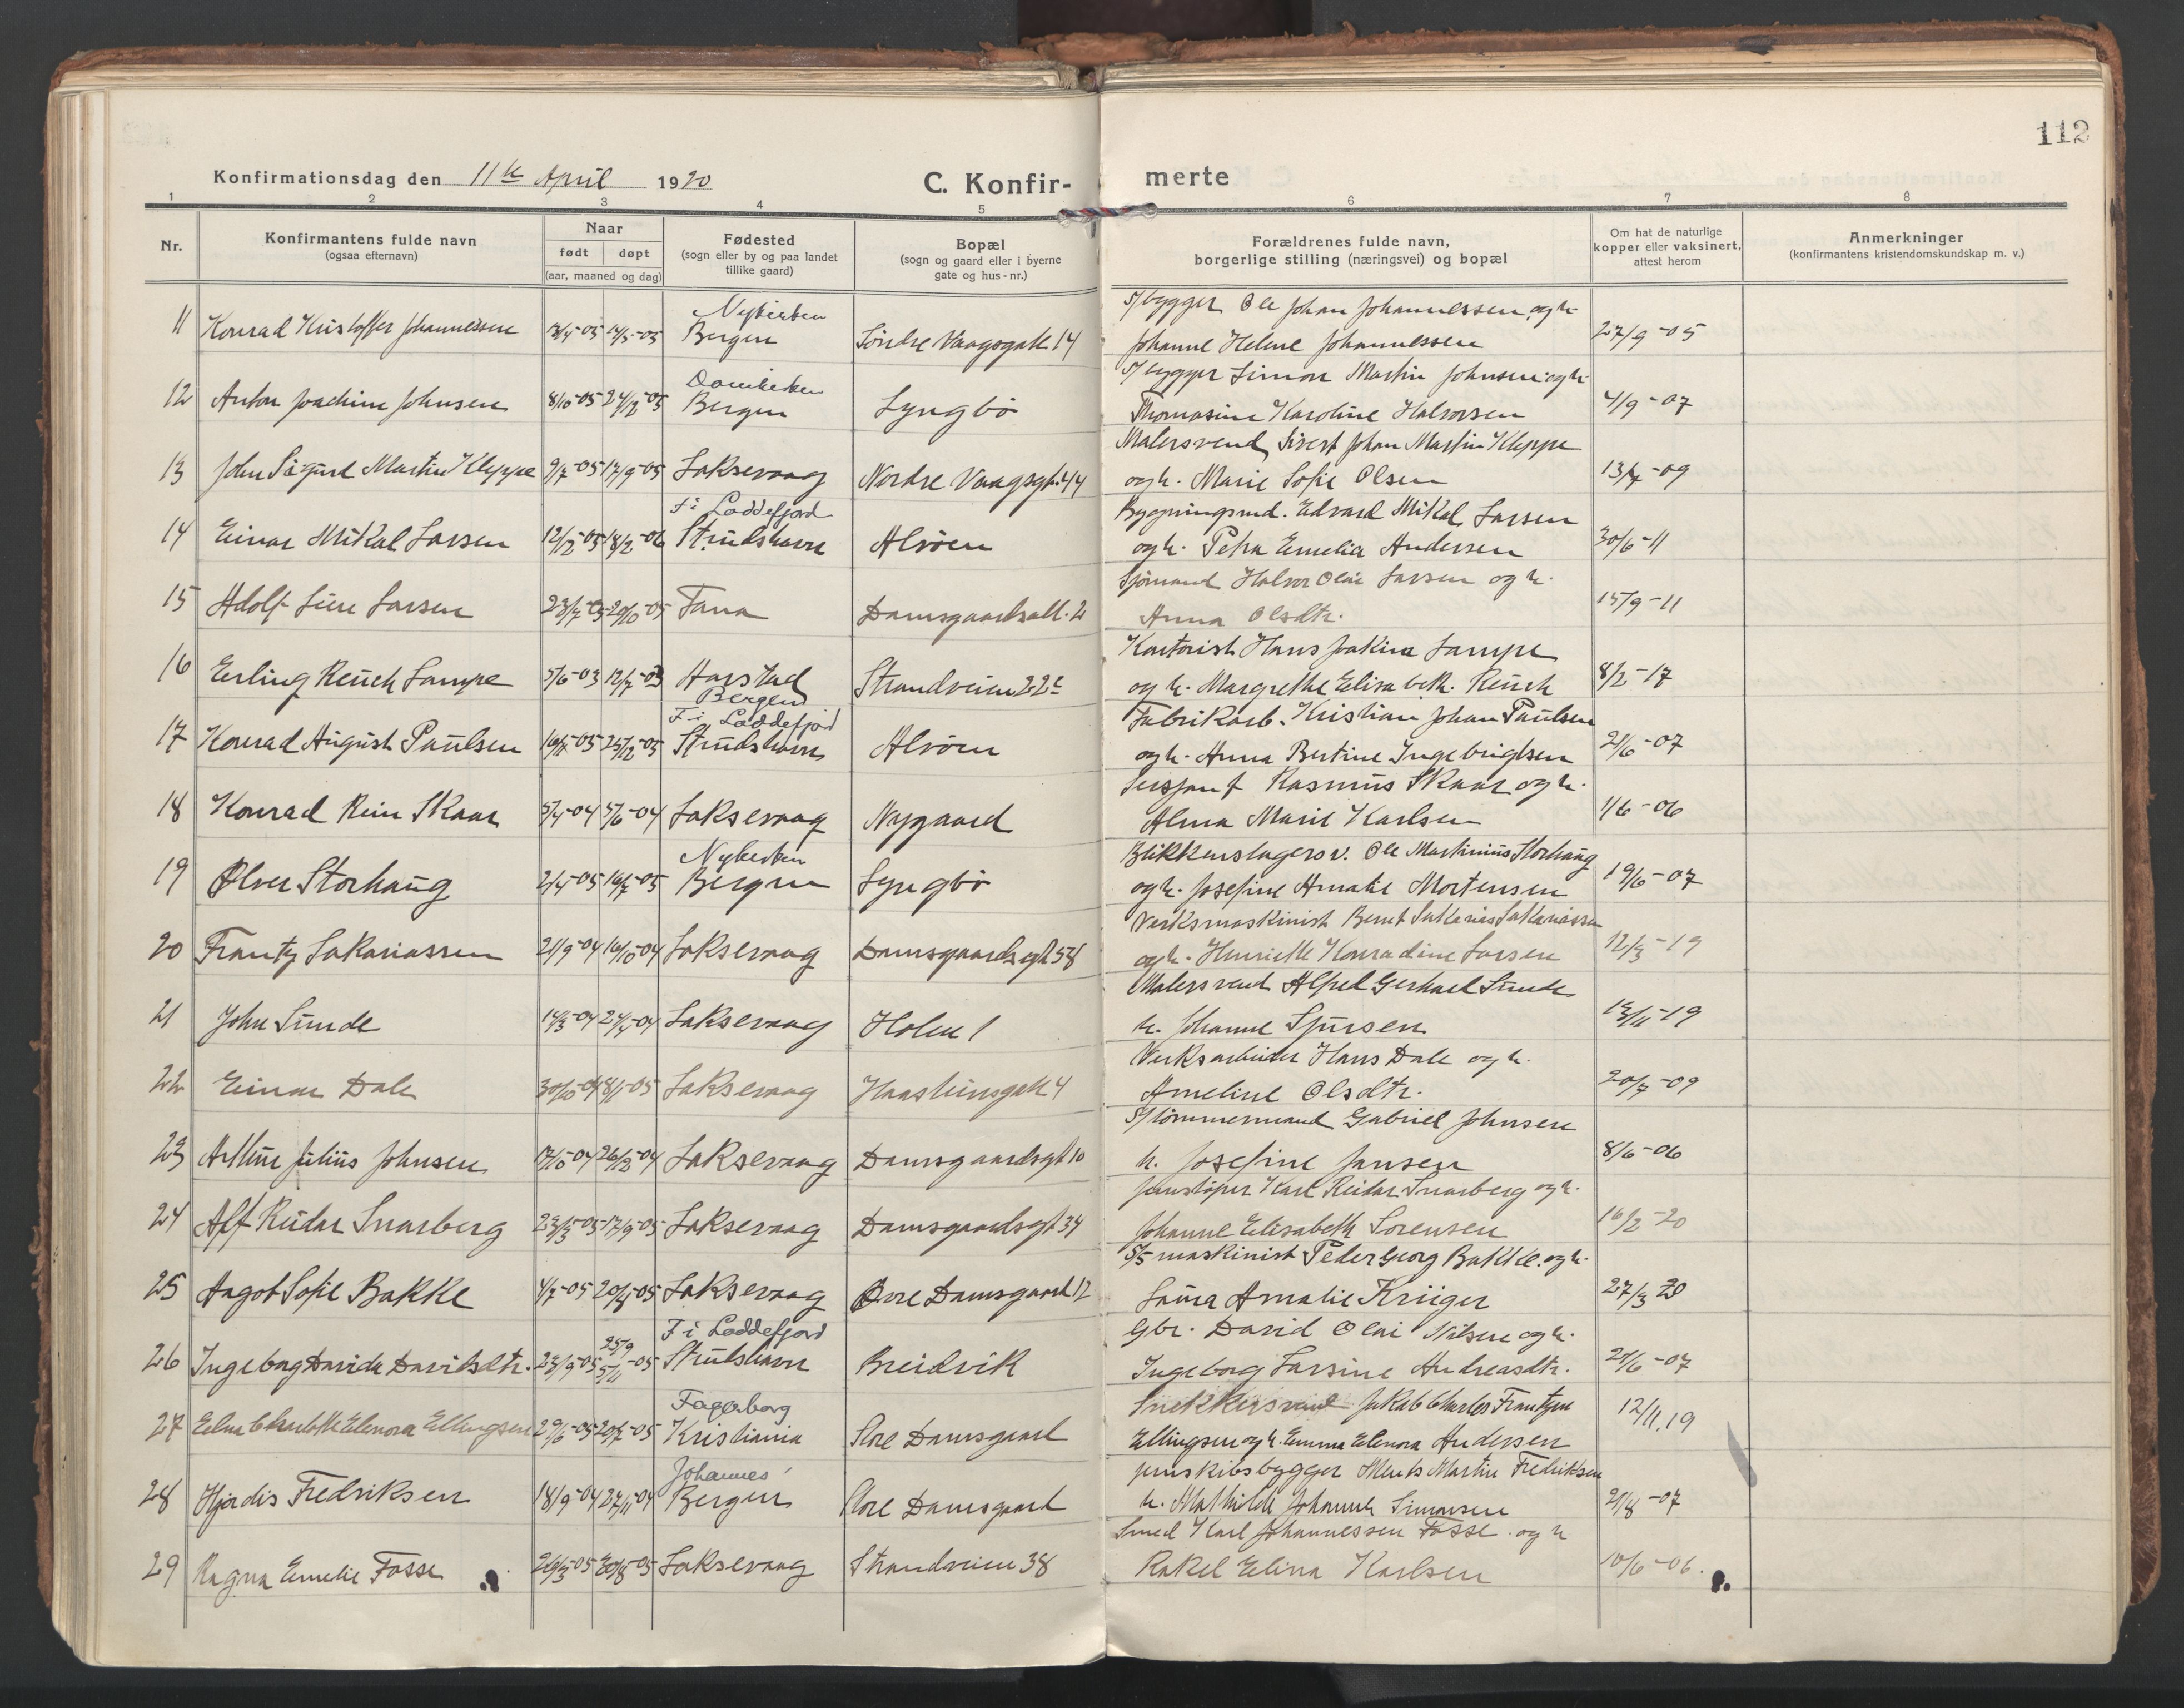 112
Konfirmationsdag den 11te April 1920 C. Konfir- merte
1 2 3 4 5 6 7 8
Nr.
Konfirmantens fulde navn
(ogsaa efternavn)
Naar
født døpt
(aar, maaned og dag)
Fødested
(sogn eller by og paa landet
tillike gaard)
Bopæl
(sogn og gaard eller i byerne
gate og hus-nr.)
Forældrenes fulde navn,
borgerlige stilling (næringsvei) og bopæl
Om hat de naturlige
kopper eller vaksinert,
attest herom
Anmerkninger
(konfirmantens kristendomskundskap m. v.)
Nykirken S/bygger Ole Johan Johannessen og h.
11 Konrad Kristoffer Johannessen Bergen Søndre Vaagsgate 14 Johanne Helene Johannessen 27/9-05
Domkirken S/bygger Simon Martin Johnsen og h.
12 Anton Joachim Johnsen 8/10-05 24/12-05 Bergen Lyngbö Thomasine Karoline Halvorsen 4/9-07
Malersvend Sivert Johan Martin Kleppe
13 John Sigurd Martin Kleppe 9/7-05 17/9-05 Laksevaag Nordre Vaagsgt. 44 og h. Marie Sofie Olsen 13/7-09
F i Loddefjord Edvard Mikal Larsen
14 Einar Mikal Larsen 12/12-05 18/2-06 Strudshavn Alvöen og h. Petra Emelia Andersen 30/6-11
Sjömand Halvor Olai Larsen og h.
15 Adolf Larsen 23/7-05 29/10-05 Fana Damsgaardsall. 2 Anna Olsdtr. 15/9-11
Kontorist Hans Joakim Lampe
16 Erling Reusch Lampe 5/6-03 12/7-03 Harstad Strandveien 22c og h. Margrethe Elisabeth Reusch 8/2-17
Bergen
F i Loddefjord Fabrikarb. Kristian Johan Paulsen
17 Konrad August Paulsen 25/12-05 Strudshavn Alvöen og h. Anna Bertine Ingebrigtsen 21/6-07
Sersjant Rasmus Skaar og h.
18 Konrad Rein Skaar 5/4-04 5/6-04 Laksevaag Nygaard Alma Marie Karlsen 1/6-06
Nykirken Blikkenslagersv. Ole Martinius Storhaug
19 Olver Storhaug 2/4-05 16/7-05 Bergen Lyngbö og h. Josefine Amalie Mortensen 19/6-07
Verksmaskinist Bernt Sakarias Sakariassen
20 Frantz Sakariassen 21/9-04 16/10-04 Laksevaag Damsgaardsgt 58 og h. Henriette Konradine Larsen 12/3-19
Malersvend Alfred Gerhard Sunde
21 John Sunde 14/3-04 24/4-04 Laksevaag Holen 1 h. Johanne Sjursen 13/11-19
Verksarbeider Hans Dale og h.
22 Einar Dale 30/10-04 8/1-05 Laksevaag Haasteinsgate 4 Ameline Olsdtr. 20/7-09
S/tömmermand Gabriel Johnsen
23 Arthur Julius Johnsen 17/10-04 26/12-04 Laksevaag Damsgaardsgt 10 h. Josefine Jansen 8/6-06
Jernstöper Karl Reidar Snarberg og h.
24 Alf Reidar Snarberg 23/3-05 17/9-05 Laksevaag Damsgaardsgt 34 Johanne Elisabeth Sorensen 16/2-20
S/s maskinist Peder Georg Bakke og h.
25 Aagot Sofie Bakke 4/7-05 20/8-05 Laksevaag Övre Damsgaard 12 Laura Amalie Krüger 27/3 20
25/9 F i Loddefjord Gbr. David Olai Nilsen og h.
26 Ingeborg Davida Davidsdtr. 23/9-05 5/11-05 Strudshavn Breidvik Ingeborg Larsine Andreasdtr. 21/6-07
Fagerborg Snekkersvend Jakob Charles Frantzen
27 Charlotte Elenora Ellingsen 29/6-05 20/7-05 Kristiania Store Damsgaard Ellingsen og h. Emma Elenora Andersen 12/11.19
Johannes Jernskibsbygger Martin Fredriksen
28 Hjördis Fredriksen 18/9-04 27/11-04 Bergen Store Damsgaard h. Mathilde Johanne Simonsen 21/8-07
Smed Karl Johannessen Fosse og h
29 Ragna Emelie Fosse 26/3-05 Laksevaag Strandveien 38 Rakel Elina Karlsen 10/6-06.